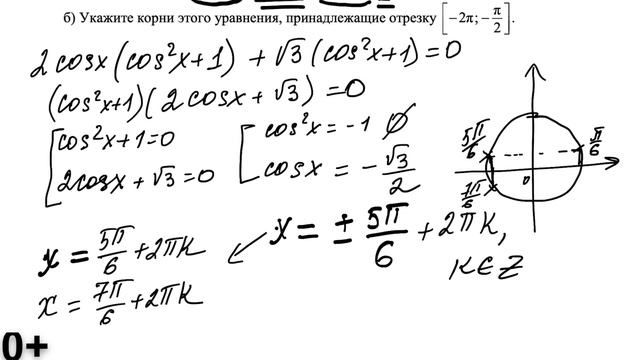 б) Укажите корни этого уравнения, принадлежащие отрезку [−2π; −π/2].
2cosx(cos²x+1) + √3(cos²x+1)=0
(cos²x+1)(2cosx+√3)=0
[cos²x+1=0 [cos²x=-1 ∅
2cosx+√3=0 cosx = -√3/2
5π/6 π/6
7π/6 0
x = ± 5π/6 + 2πk,
k∈Z
x = 5π/6 + 2πk
x = 7π/6 + 2πk
0+